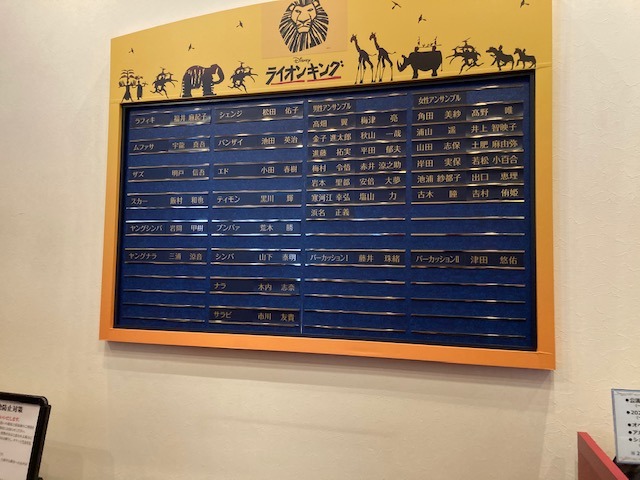 Disney
ライオンキング
ラフィキ 福井 麻起子
ムファサ 宇龍 真吾
ザズ 明戸 信吾
スカー 飯村 和也
ヤングシンバ 岩間 甲樹
ヤングナラ 三浦 涼音
シェンジ 松田 佑子
バンザイ 池田 英治
エド 小田 春樹
ティモン 黒川 輝
プンバァ 荒木 勝
シンバ 山下 泰明
ナラ 木内 志奈
サラビ 市川 友貴
男性アンサンブル
高畑 翼 梅津 亮
金子 進太郎 秋山 一哉
進藤 拓実 平田 郁夫
梅村 令悟 赤井 涼之助
岩本 里都 安倍 大夢
寒河江 幸弘 塩山 力
浜名 正義
パーカッションⅠ 藤井 珠緒
女性アンサンブル
角田 美紗 高野 唯
浦山 遥 井上 智映子
山田 志保 土肥 麻由弥
岸田 実保 若松 小百合
池浦 紗都子 出口 恵理
古木 瞳 吉村 侑姫
パーカッションⅡ 津田 悠佑